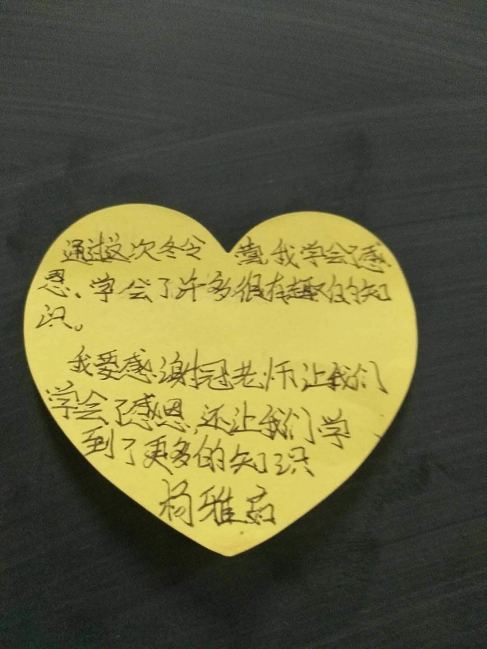 通过这次冬令营,我学会了感
恩、学会了许多很有趣的知
识。
我要感谢冠老师让我们
学会了感恩,还让我们学
到了更多的知识
杨雅茹